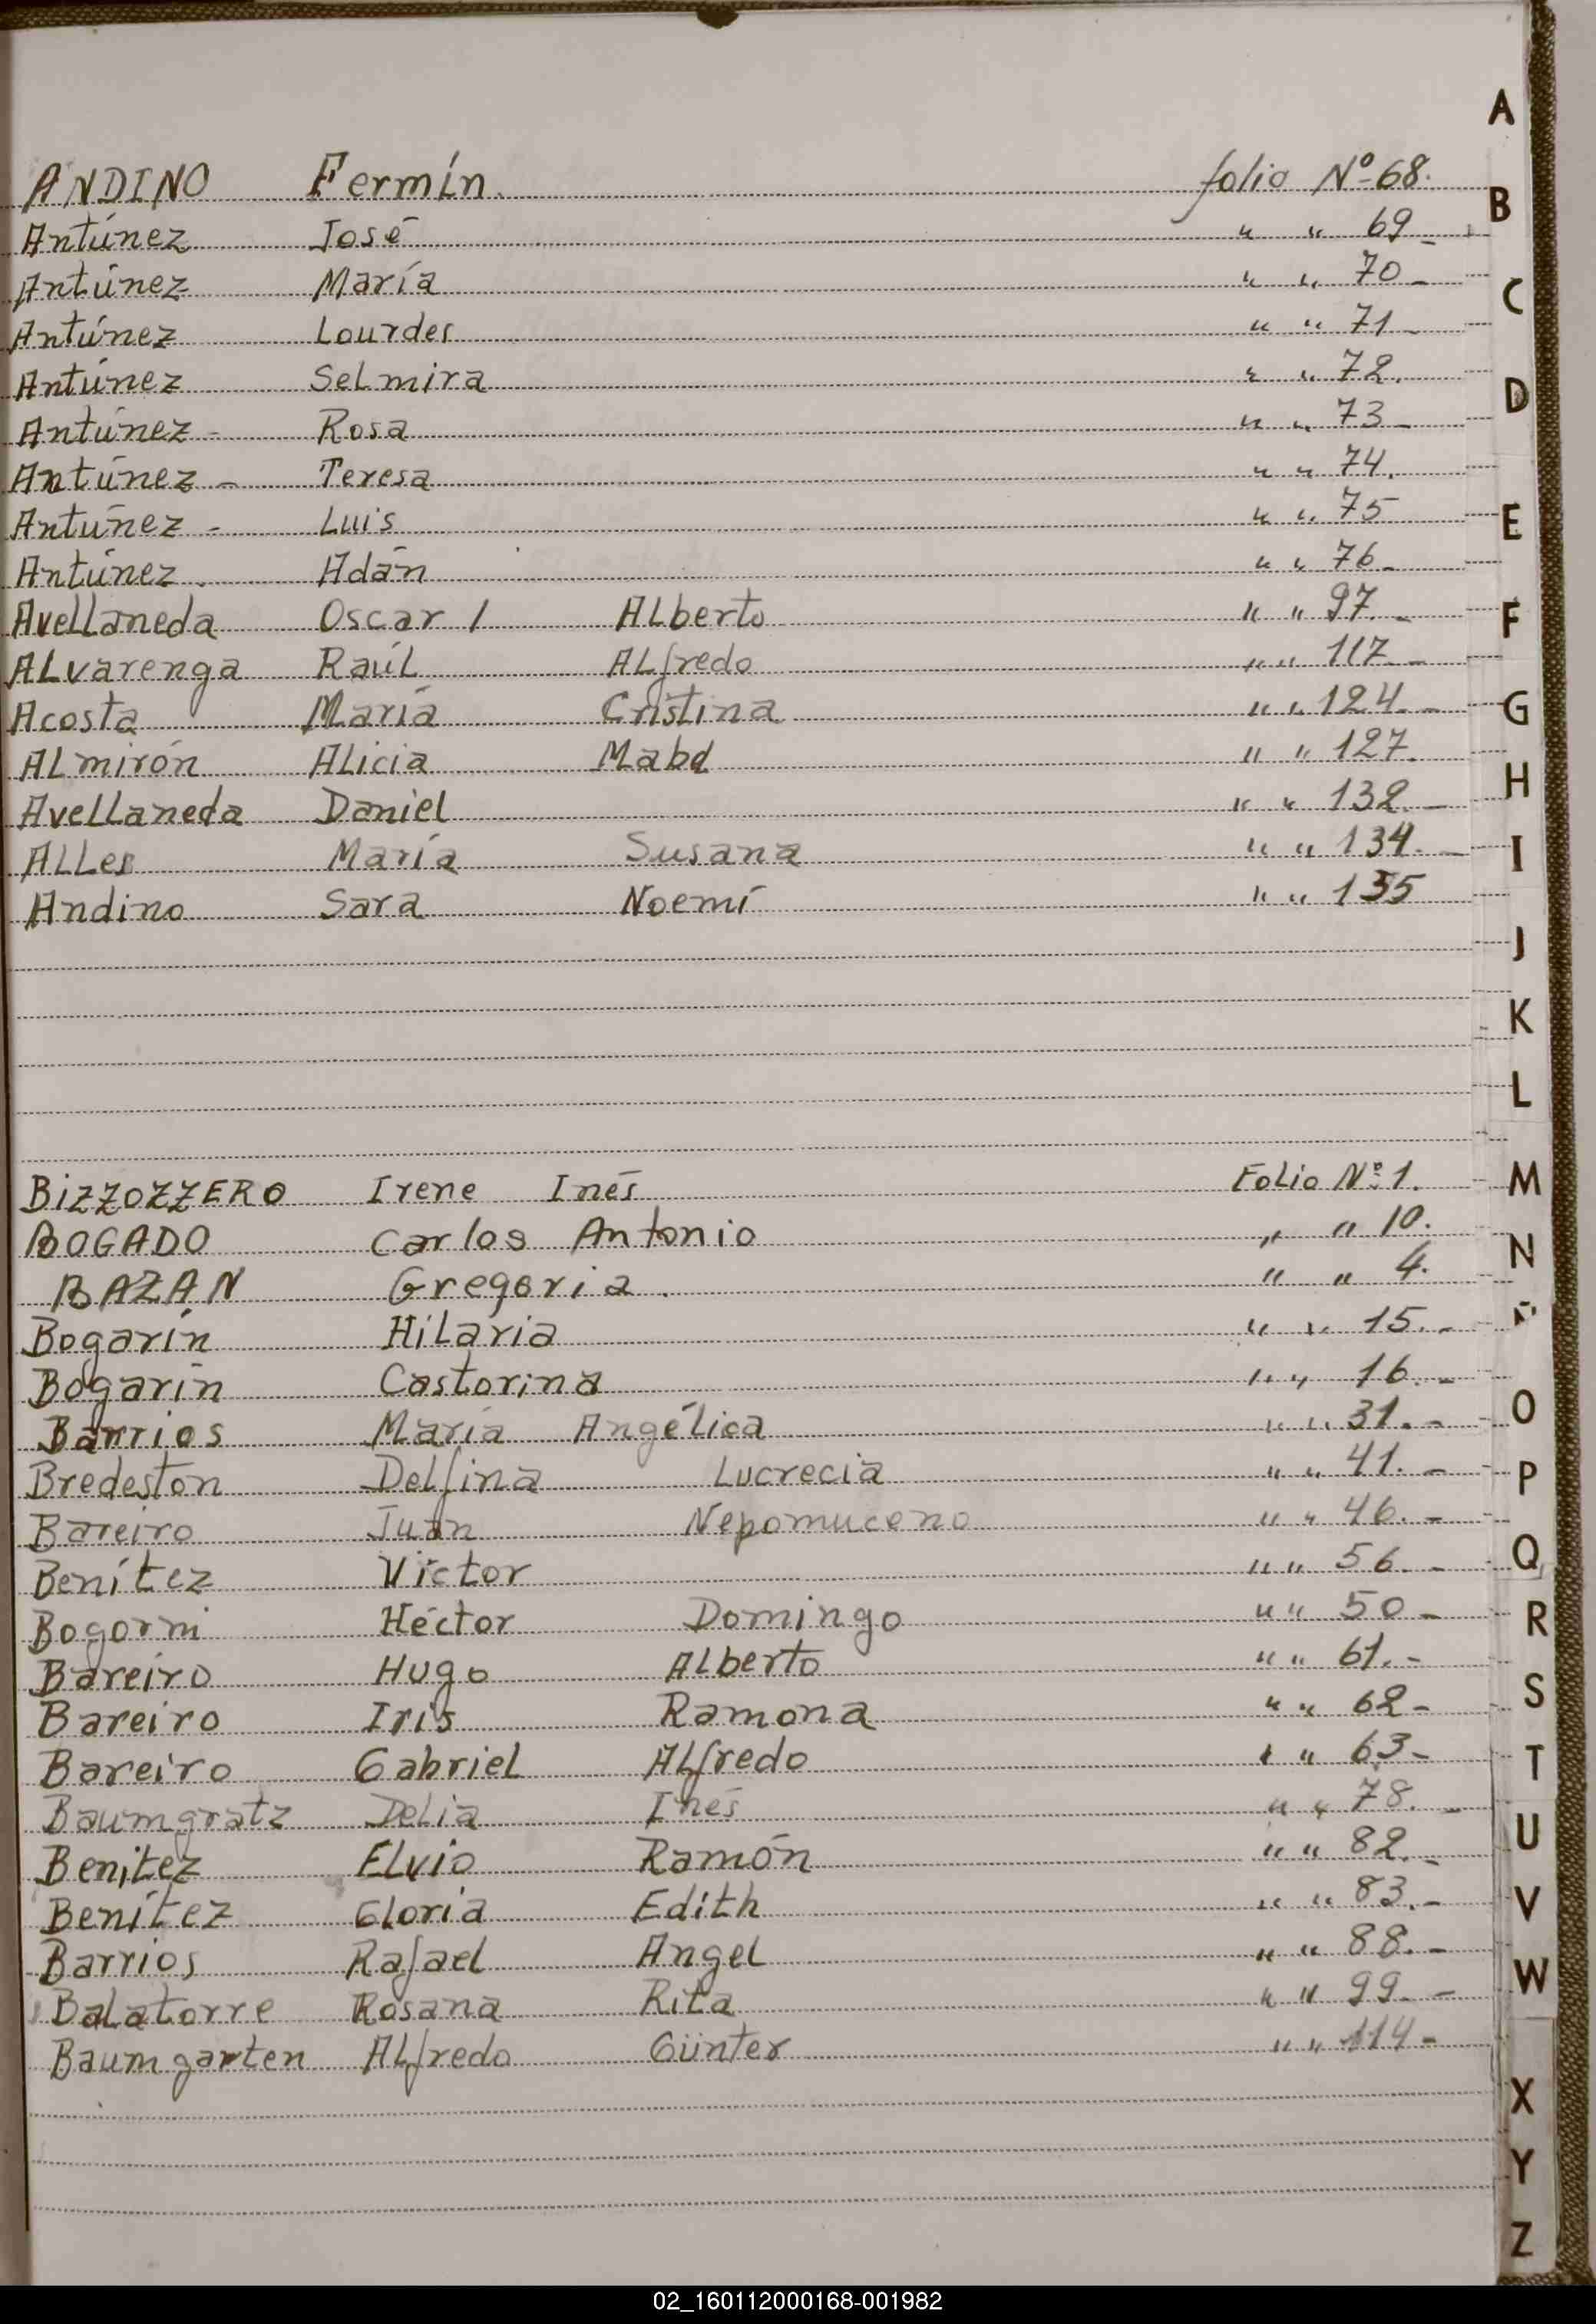 A
ANDINO Fermín. folio Nº 68.
B
Antúnez José " " 69 -
Antúnez María " " 70 -
C
Antúnez Lourdes " " 71 -
Antúnez Selmira " " 72.
D
Antúnez - Rosa " " 73 -
Antúnez - Teresa " " 74.
Antúnez - Luis " " 75
E
Antúnez. Adán " " 76 -
Avellaneda Oscar / Alberto " " 97. -
F
Alvarenga Raúl Alfredo " " 117 -
Acosta María Cristina " " 124. -
G
Almirón Alicia Mabel " " 127.
Avellaneda Daniel " " 132. -
H
Alles María Susana " " 134. -
I
Andino Sara Noemí " " 135
J
K
L
BIZZOZZERO Irene Inés Folio Nº 1.
M
BOGADO Carlos Antonio " " 10.
N
BAZAN Gregoria. " " 4.
Bogarín Hilaria " " 15. -
Bogarín Castorina " " 16. -
O
Barrios María Angélica " " 31. -
Bredeston Delfina Lucrecia " " 41. -
P
Bareiro Juan Nepomuceno " " 46. -
Benítez Víctor " " 56. -
Q
Bogorni Héctor Domingo " " 50 -
R
Bareiro Hugo Alberto " " 61. -
Bareiro Iris Ramona " " 62 -
S
Bareiro Gabriel Alfredo " " 63 -
T
Baumgratz Delia Inés " " 78. -
Benitez Elvio Ramón " " 82. -
U
Benítez Gloria Edith " " 83. -
V
Barrios Rafael Angel " " 88. -
W
Balatorre Rosana Rita " " 99. -
Baumgarten Alfredo Günter " " 114 -
X
Y
Z
02_160112000168-001982